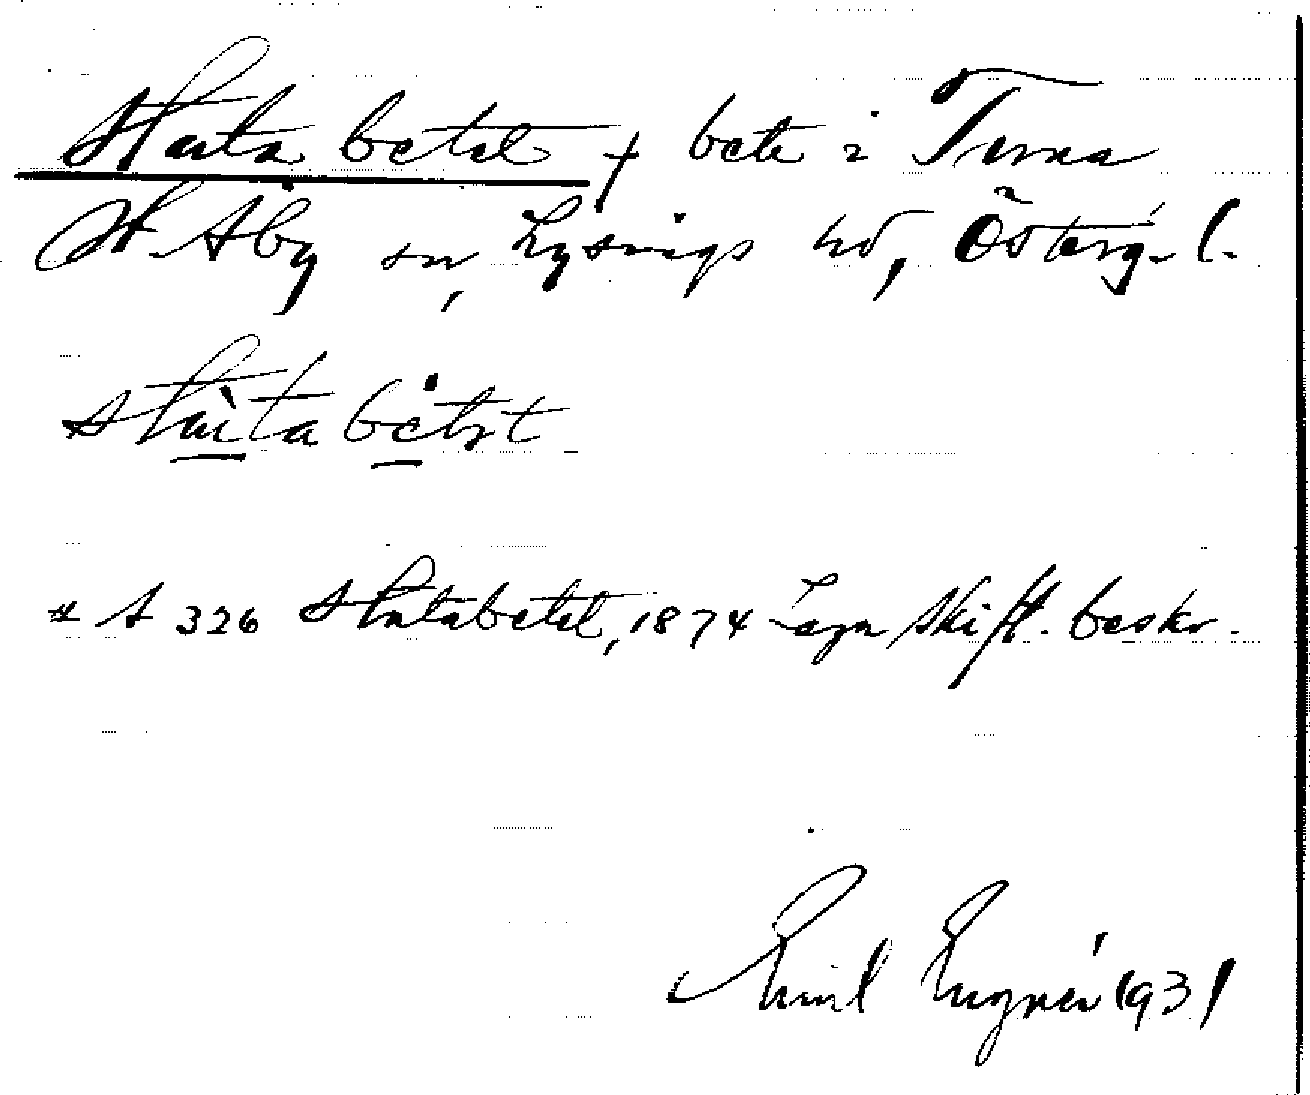 Stutabetet + bete i Tuna
St. Åby sn, Lysings hd, Österg. l.
stutabetet
* A 326 Stutabetet, 1874 Laga skift. beskr.
Emil 1931